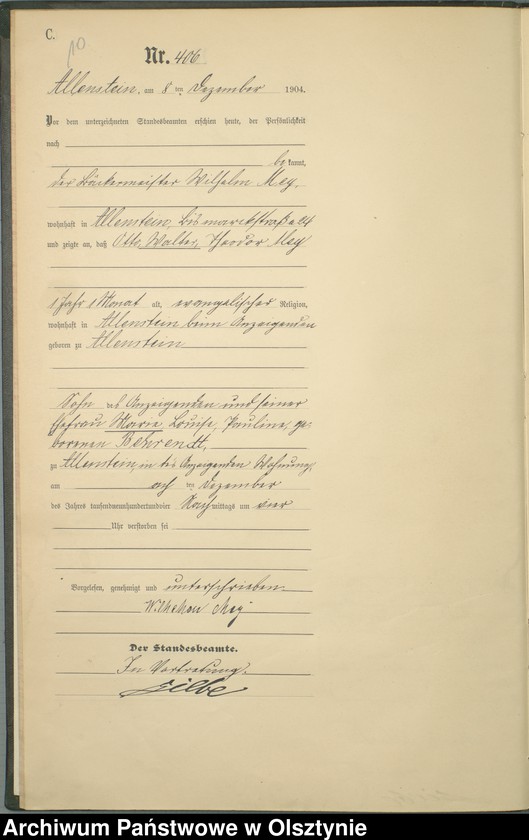 C.
10
Nr. 406
Allenstein, am 8 ten Dezember 1904.
Vor dem unterzeichneten Standesbeamten erschien heute, der Persönlichkeit
nach
be kannt,
der Bäckermeister Wilhelm Mey,
wohnhaft in Allenstein, Bismarckstraße
und zeigte an, daß Otto, Walter, Theodor Mey
1 Jahr 1 Monat alt, evangelischer Religion,
wohnhaft in Allenstein beim Anzeigenden
geboren zu Allenstein
Sohn des Anzeigenden und seiner
Ehefrau Marie Louise, Pauline, ge-
borenen Behrendt,
zu Allenstein, in des Anzeigenden Wohnung,
am ten Dezember
des Jahres tausendneunhundertundvier Nachmittags um vier
Uhr verstorben sei
Vorgelesen, genehmigt und unterschrieben
Wilhelm Mey
Der Standesbeamte.
In Vertretung.
Archiwum Państwowe w Olsztynie